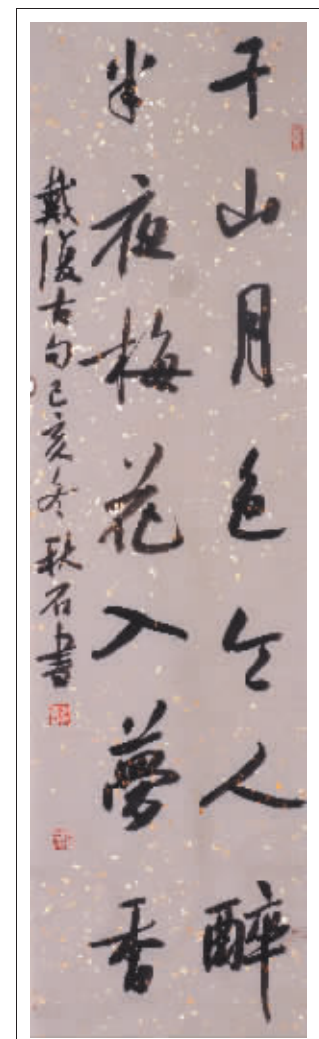 千山月色令人醉
半夜梅花入夢香
戴復古句己亥冬秋石書